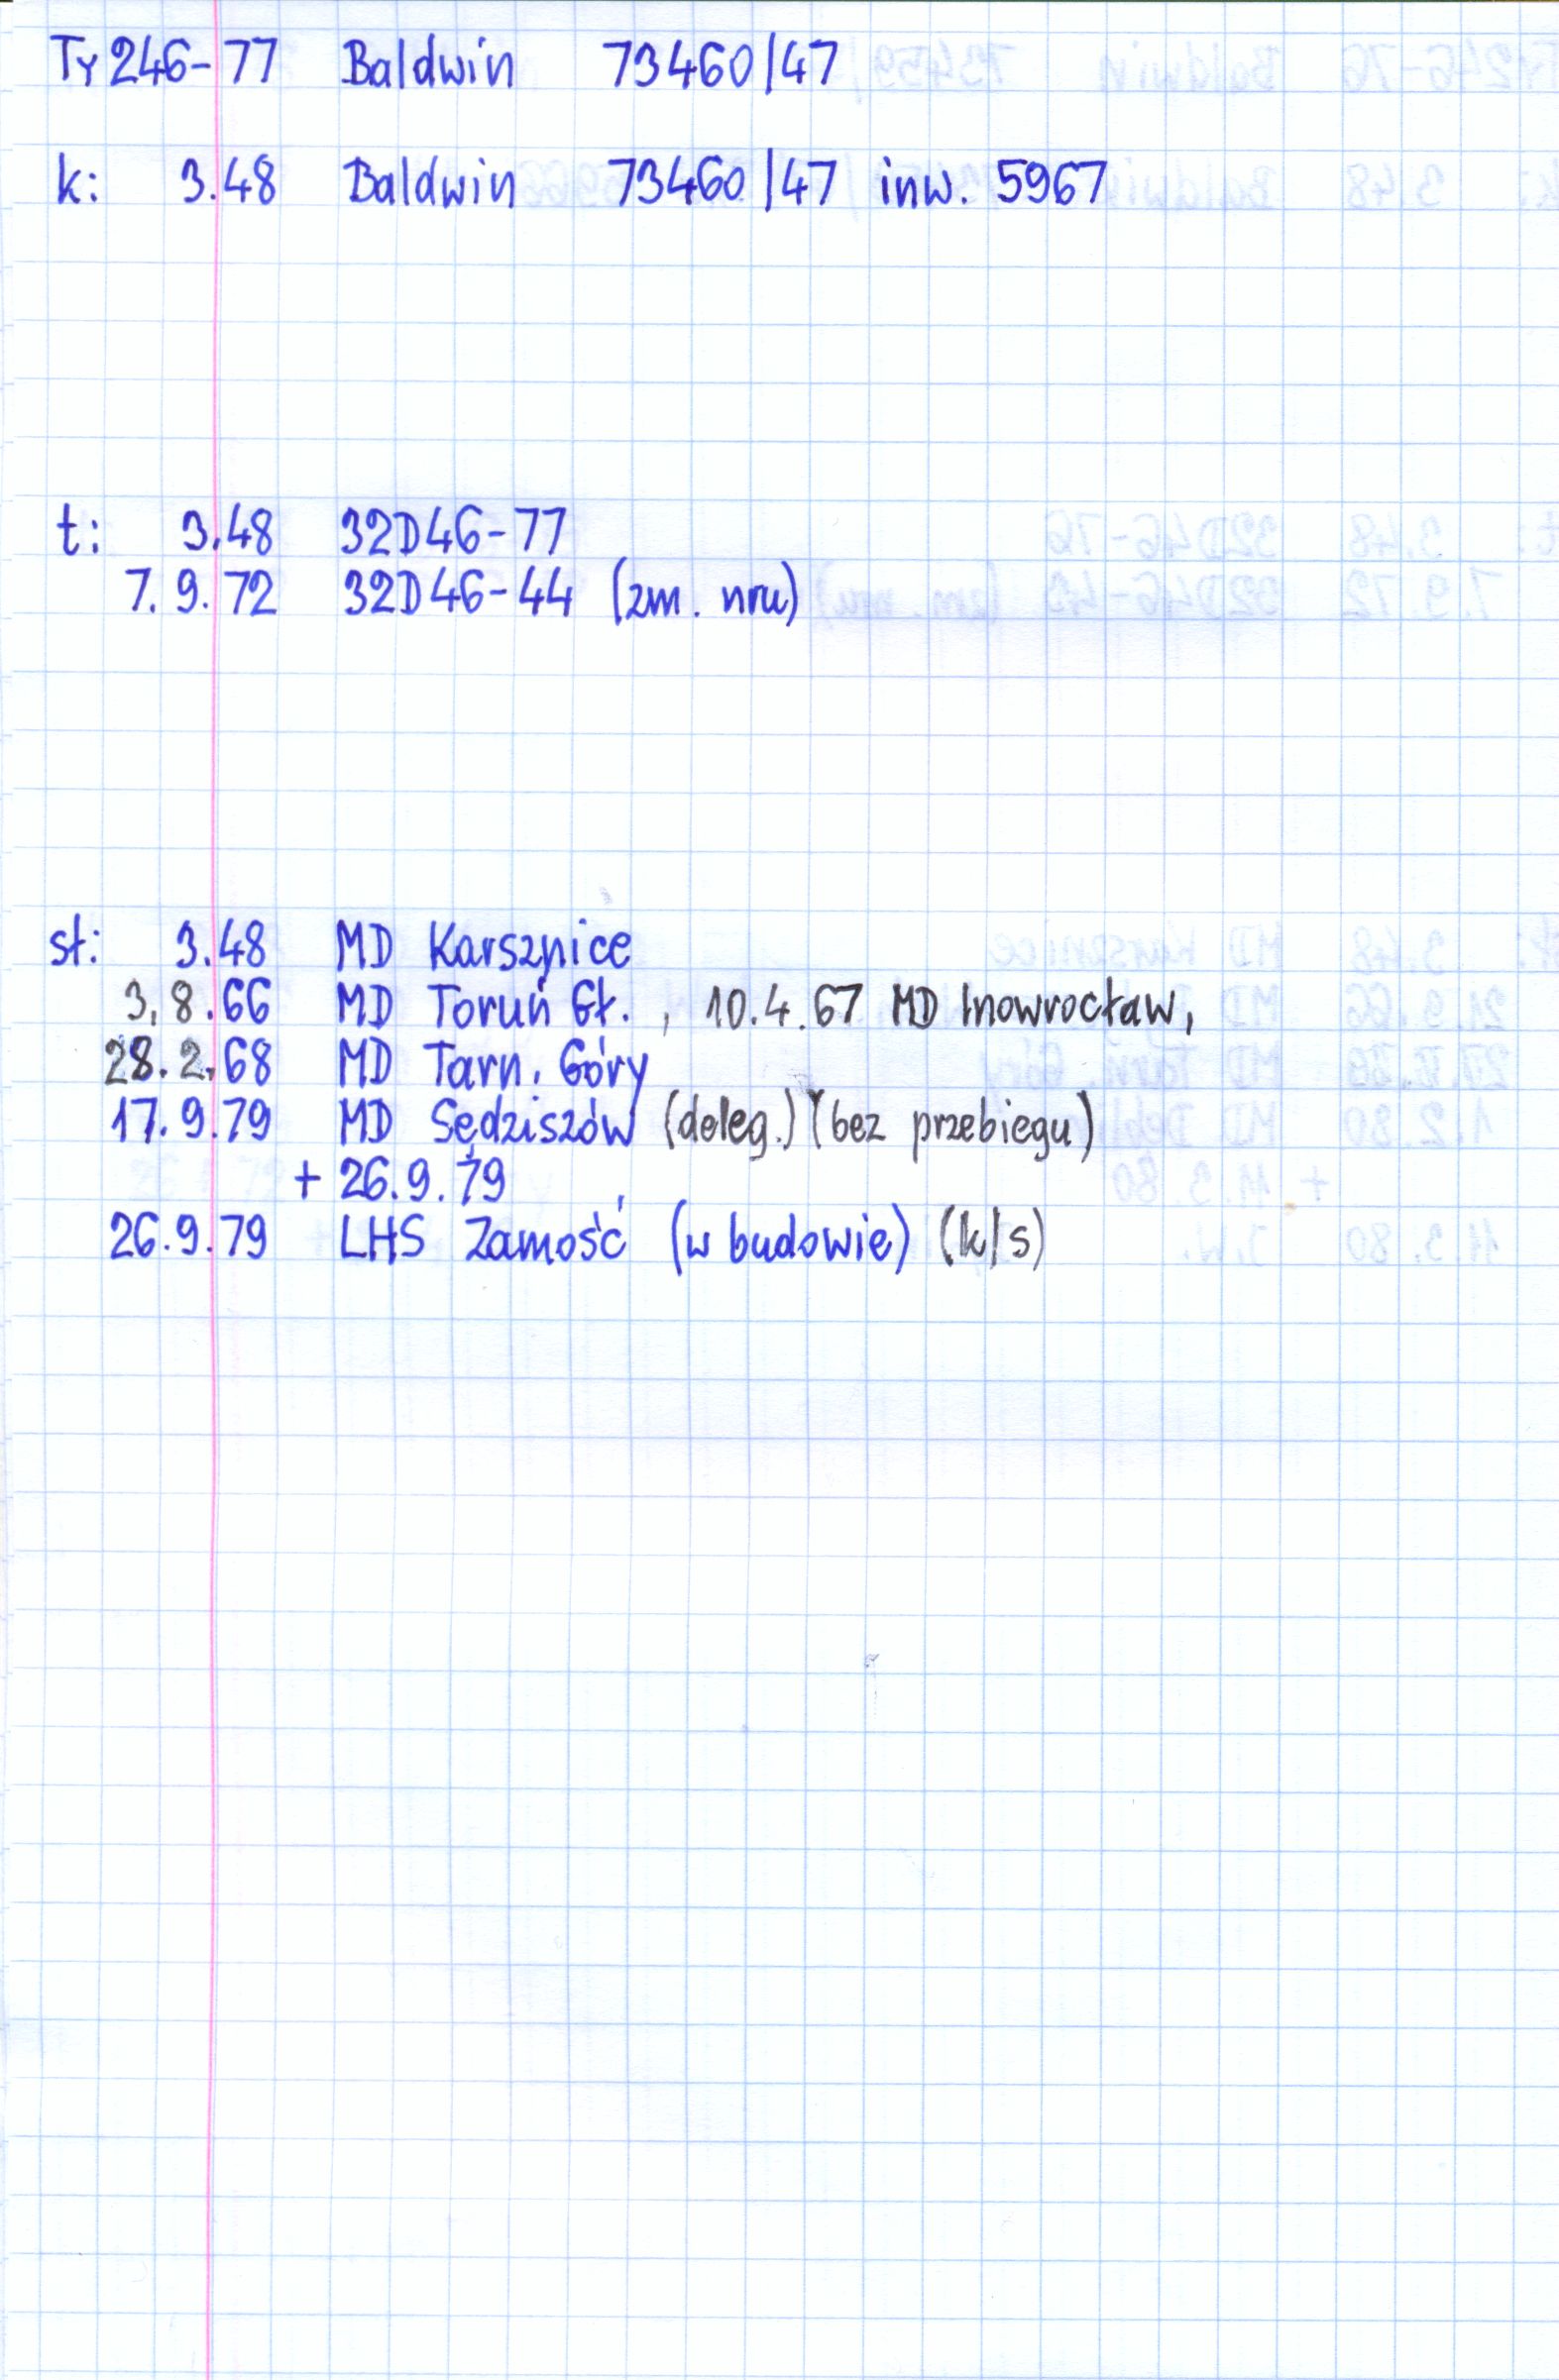 Ty246-77 Baldwin 73460/47
k: 3.48 Baldwin 73460/47 inw. 5967
t: 3.48 32D46-77
7.9.72 32D46-44 (zm. nru)
st: 3.48 MD Karsznice
3.8.66 MD Toruń Gł., 10.4.67 MD Inowrocław,
28.2.68 MD Tarn. Góry
17.9.79 MD Sędziszów (deleg.) (bez przebiegu)
+ 26.9.79
26.9.79 LHS Zamość (w budowie) (k/s)